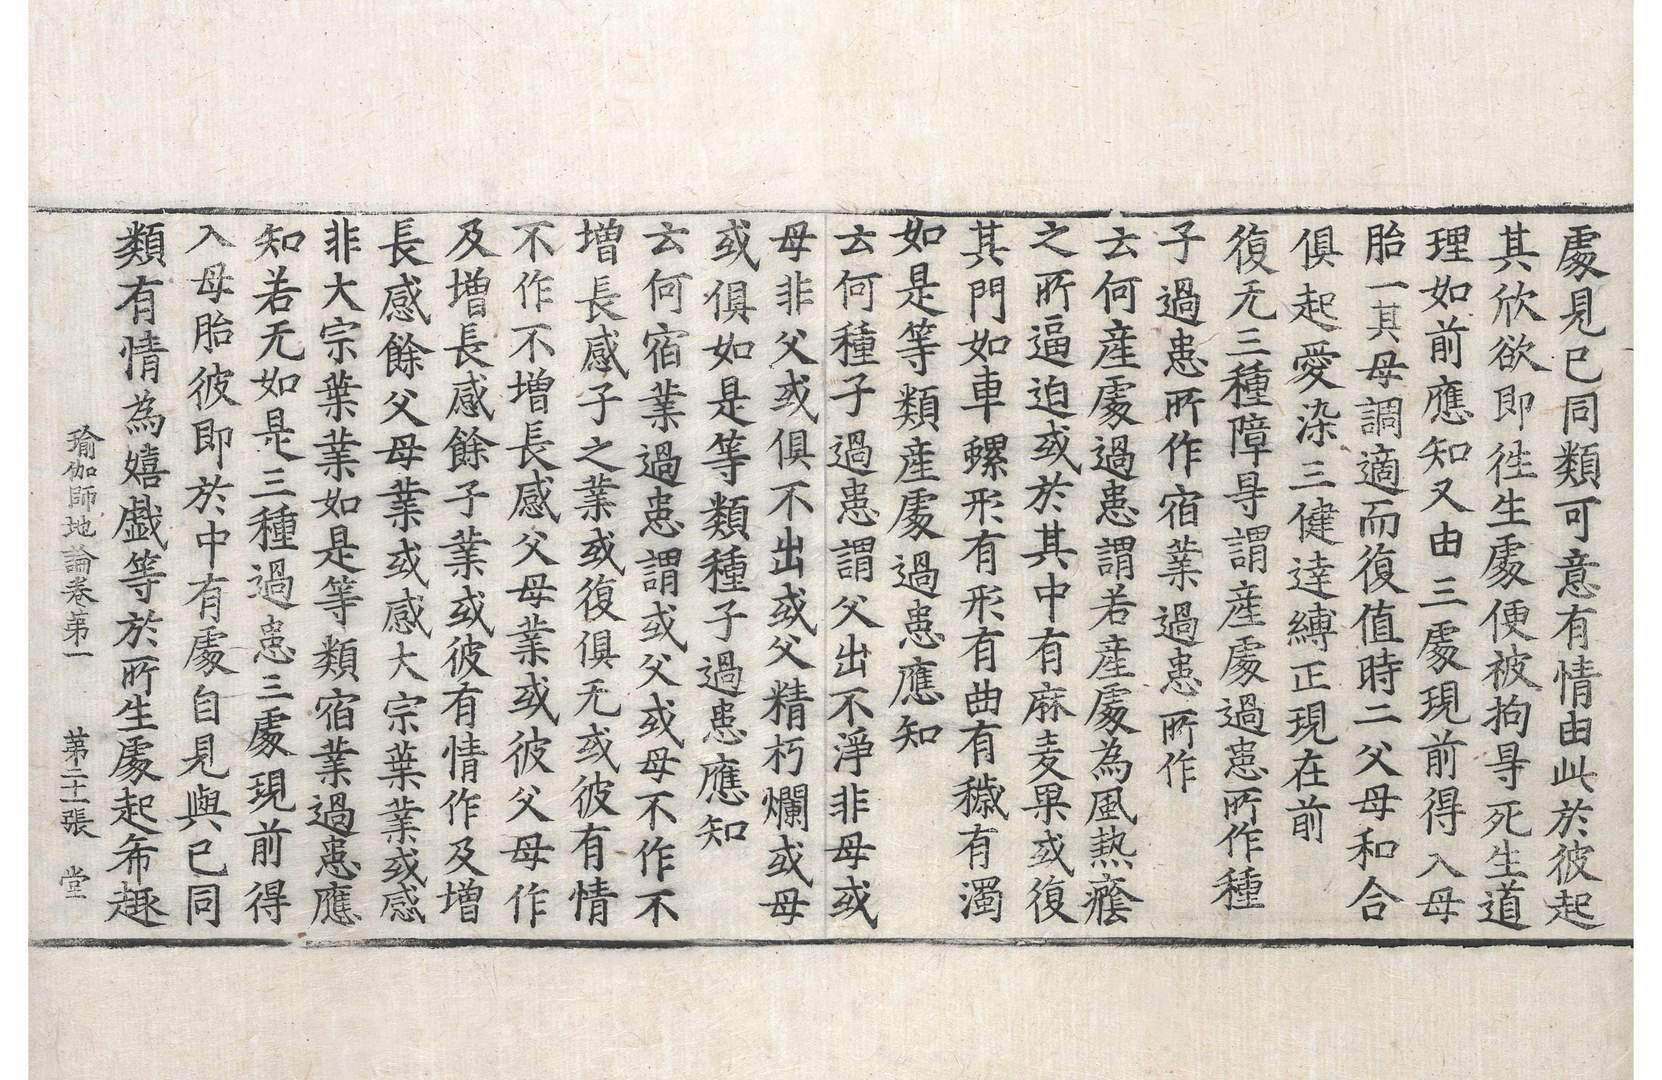 處見已同類可意有情由此於彼起
其欣欲即往生處便被拘㝵死生道
理如前應知又由三處現前得入母
胎一其母調適而復值時二父母和合
俱起愛染三健達縛正現在前
復无三種障㝵謂産處過患所作種
子過患所作宿業過患所作
云何産處過患謂若産處為風熱癊
之所逼迫或於其中有麻麦果或復
其門如車螺形有形有曲有穢有濁
如是等類産處過患應知
云何種子過患謂父出不淨非母或
母非父或俱不出或父精朽爛或母
或俱如是等類種子過患應知
云何宿業過患謂或父或母不作不
增長感子之業或復俱无或彼有情
不作不增長感父母業或彼父母作
及增長感餘子業或彼有情作及增
長感餘父母業或感大宗葉業或感
非大宗葉業如是等類宿業過患應
知若无如是三種過患三處現前得
入母胎彼即於中有處自見與已同
類有情為嬉戯等於所生處起希趣
瑜伽師地論卷第一 第二十一張 堂